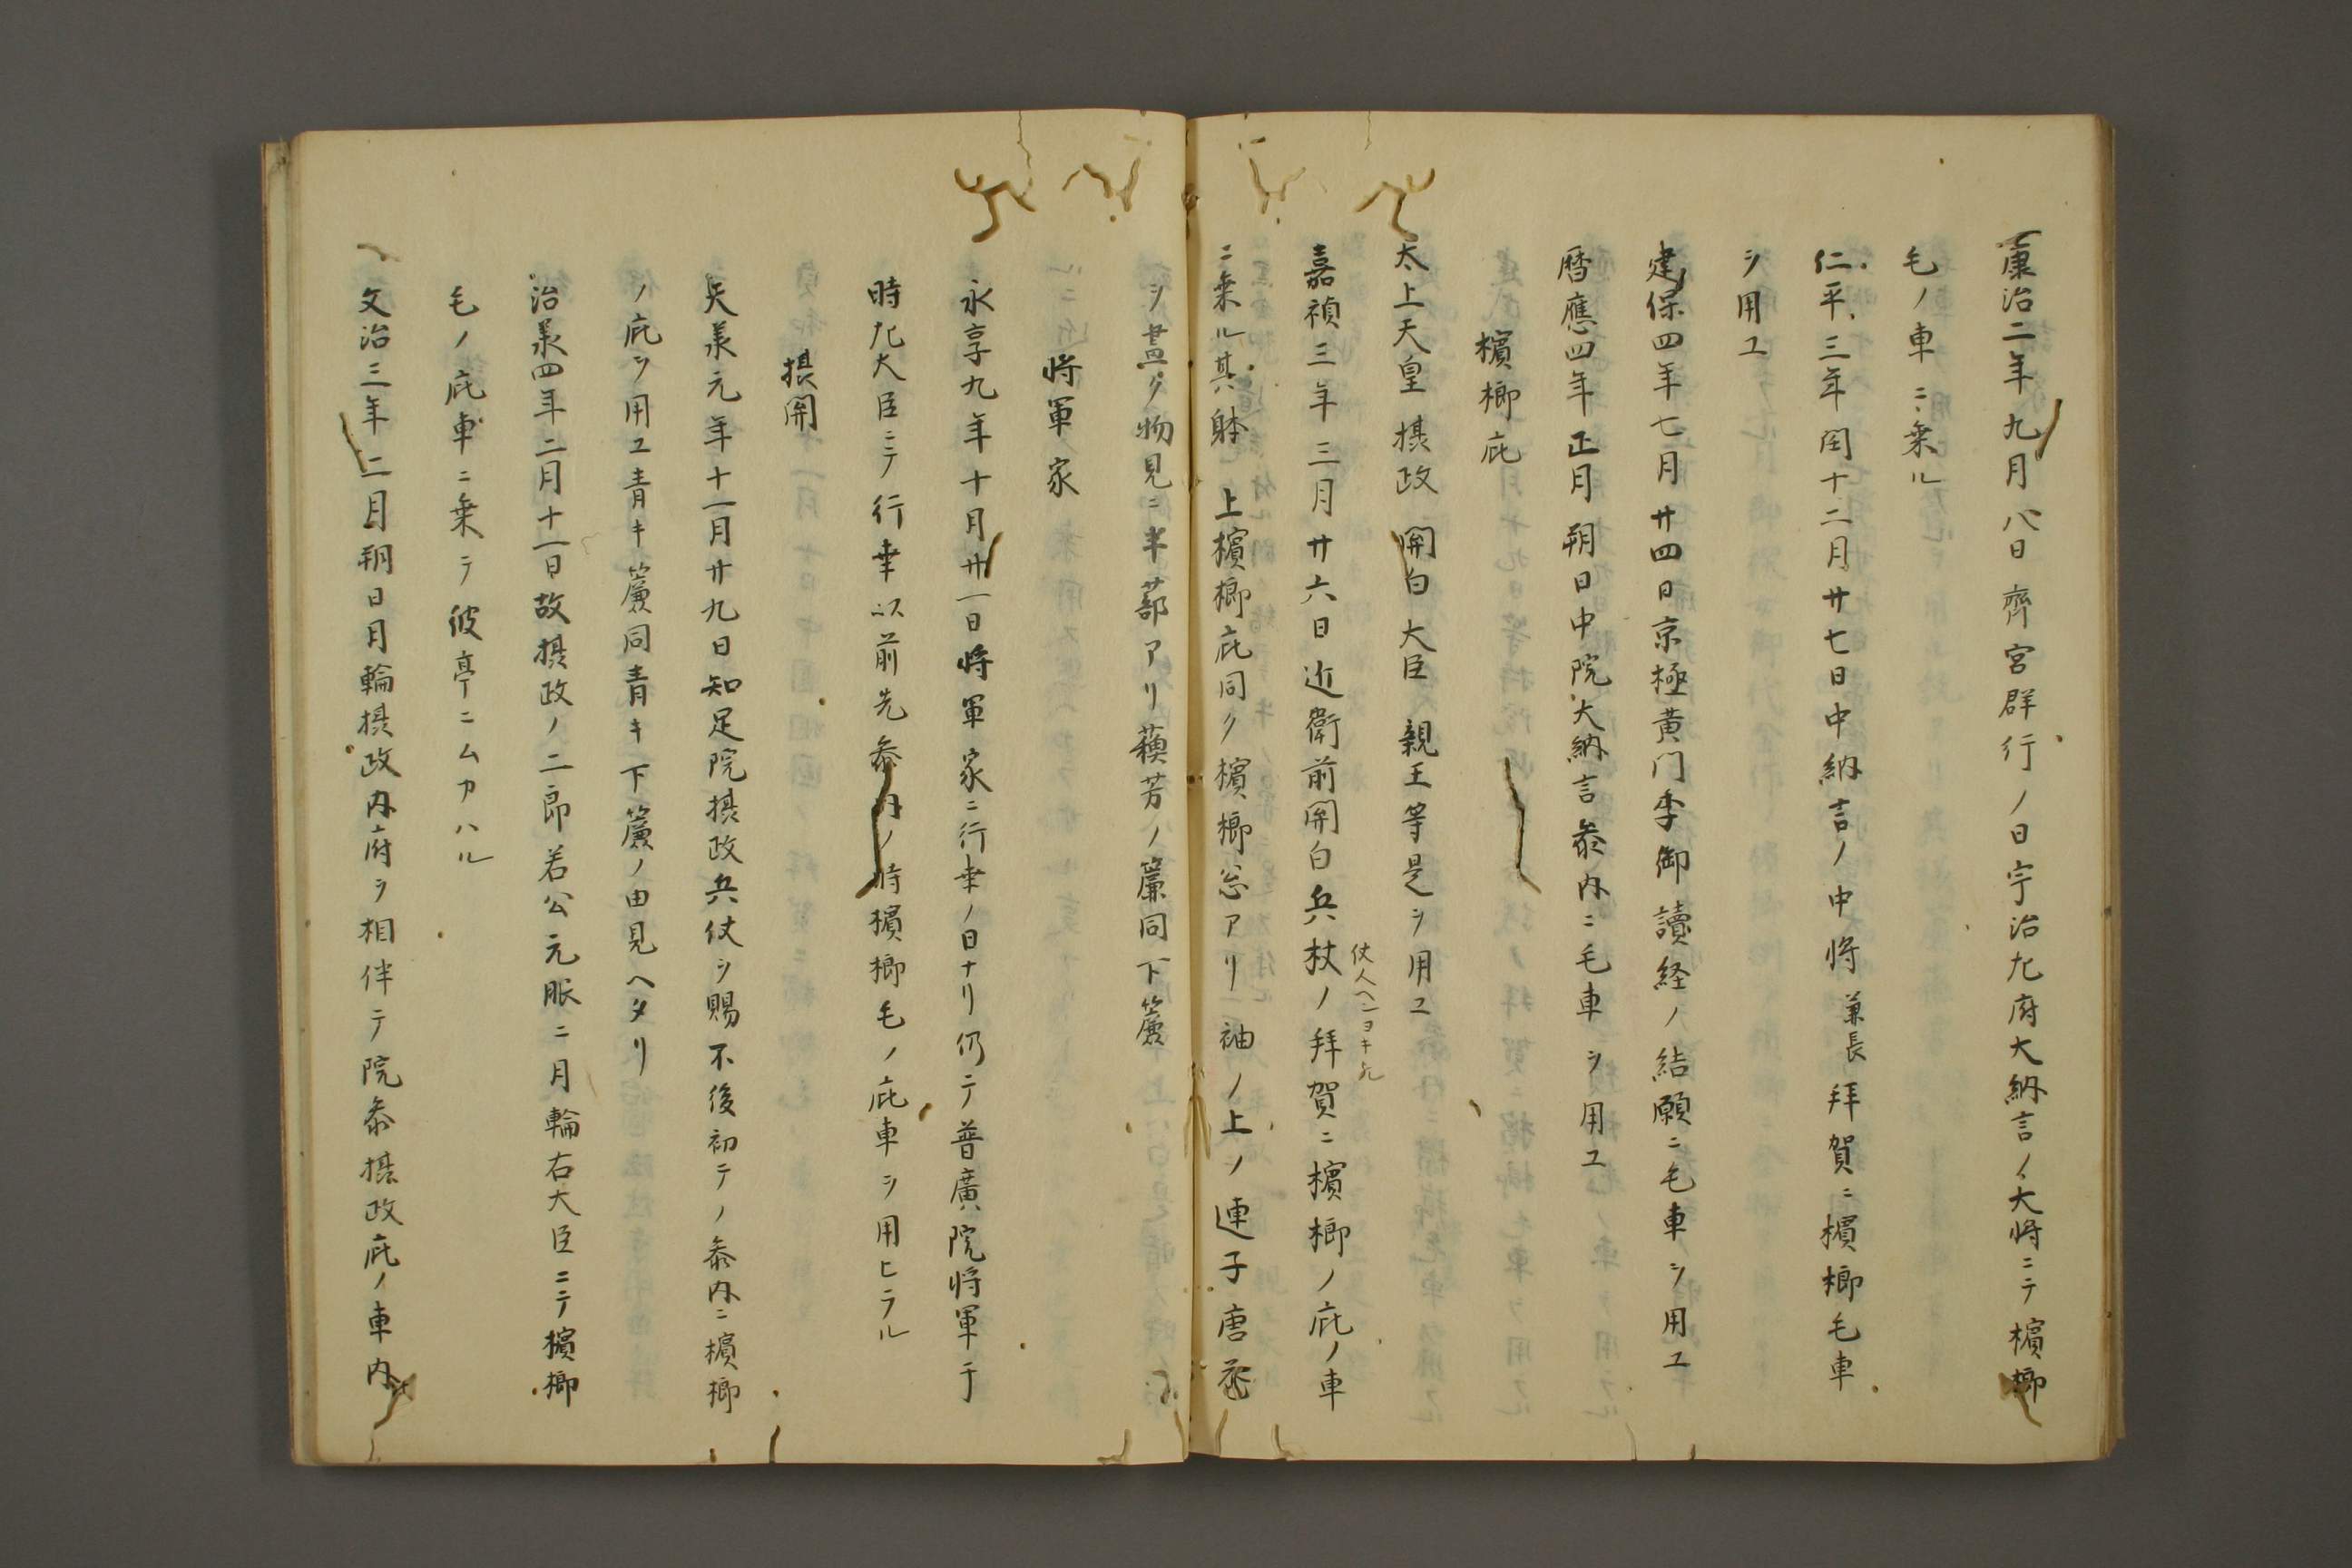 康治二年九月八日齊宮群行ノ日宇治左府大納言ノ大将ニテ檳榔
毛ノ車ニ乗ル
仁平三年閏十二月廿七日中納言ノ中将兼長拜賀ニ檳榔毛車
ヲ用ユ
建保四年七月廿四日京極黄门季御讀経ノ結願ニ毛車ヲ用ユ
暦應四年正月朔日中院大納言叅内ニ毛車ヲ用ユ
檳榔庇
太上天皇摂政関白大臣親王等是ヲ用ユ
仗人ヘンヨキ
嘉禎三年三月廿六日近衛前関白兵杖ノ拜賀ニ檳榔ノ庇ノ車
ニ乗ル其躰上檳榔庇同ク檳榔アリ袖ノ上ノ連子唐花
ヲ畫ク物見ニ半蔀アリ蘓芳ノ簾同下簾
将軍家
永享九年十月廿一日将軍家ニ行幸ノ日ナリ仍テ普廣院将軍于
時左大臣ニテ行幸以前先叅内ノ時檳榔毛ノ庇車ヲ用ヒラル
摂関
天養元年十一月廿九日知足院摂政兵仗ヲ賜不後初テノ叅内ニ檳榔
ノ庇ヲ用ユ青キ簾同青キ下簾ノ由見ヘタリ
治承四年二月十一日故摂政ノ二郎若公元服ニ月輪右大臣ニテ檳榔
毛ノ庇車ニ乗テ彼亭ニムカハル
文治三年二月朔日月輪摂政内府ヲ相伴テ院叅摂政庇ノ車内